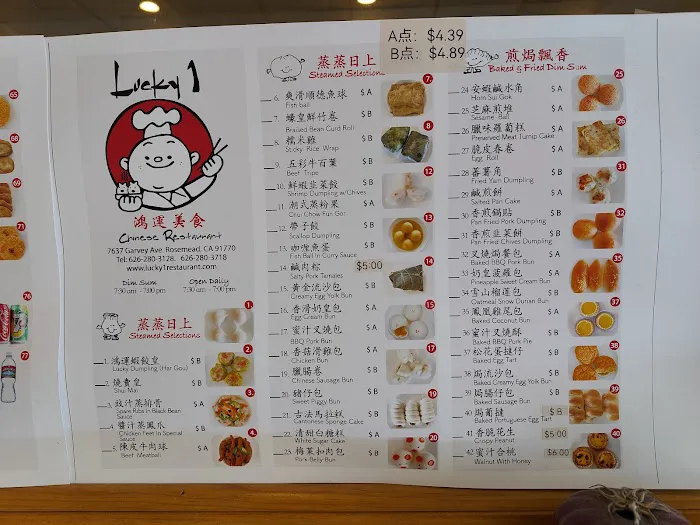 65
68
69
71
76
77
Lucky 1
鴻運美食
Chinese Restaurant
7637 Garvey Ave. Rosemead, CA 91770
Tel: 626-280-3128. 626-280-3718
www.lucky1restaurant.com
Dim Sum Open Daily
7:30 am - 7:00 pm 7:30 am - 7:00 pm
蒸蒸日上
Steamed Selections
1. 鴻運蝦餃皇 $ B
Lucky Dumpling (Har Gou)
2. 燒賣皇 $ B
Shui Nai
3. 豉汁蒸排骨 $ A
Spare Ribs in Black Bean
Sauce
4. 醬汁蒸鳳爪 $ B
Chicken Feet In Special
Sauce
5. 陳皮牛肉球 $ A
Beef Meatball
1.
2.
3.
4.
A点: $4.39
B点: $4.89
蒸蒸日上
Steamed Selections
6. 爽滑順德魚球 $ A
Fish ball
7. 蠔皇鮮竹卷 $ B
Braised Bean Curd Roll
8. 糯米雞 $ B
Sticky Rice Wrap
9. 五彩牛百葉 $ B
Beef Tripe
10. 鮮蝦韭菜餃 $ B
Shrimp Dumpling w/Chives
11. 潮式蒸粉果 $ A
Chiu Chow Fun Gor
12. 帶子餃 $ B
Scallop Dumpling
13. 咖喱魚蛋 $ B
Fish Ball In Curry Sauce
14. 鹹肉粽 $5.00
Salty Pork Tamales
15. 黃金流沙包 $ B
Creamy Egg Yolk Bun
16. 香滑奶皇包 $ A
Egg Cream Bun
17. 蜜汁叉燒包 $ A
BBQ Pork Bun
18. 香菇滑雞包 $ A
Chicken Bun
19. 臘腸卷 $ B
Chinese Sausage Bun
20. 豬仔包 $ B
Sweet Piggy Bun
21. 古法馬拉糕 $ B
Cantonese Sponge Cake
22. 清甜白糖糕 $ A
White Sugar Cake
23. 梅菜扣肉包 $ B
Pork Belly Bun
7.
8
12
13
14
15
17
19
20
煎焗飄香
Baked & Fried Dim Sum
24. 安蝦鹹水角 $ A
Hom Sui Gok
25. 芝麻煎堆 $ A
Sesame Ball
26. 臘味蘿蔔糕 $ A
Preserved Meat Turnip Cake
27. 脆皮春卷 $ A
Egg Roll
28. 蕃薯角 $ A
Fried Yam Dumpling
29. 鹹煎餅 $ A
Salted Pan Cake
30. 香煎鍋貼 $ A
Pan Fried Pork Dumpling
31. 香煎韭菜餅 $ A
Pan Fried Chives Dumpling
32. 叉燒焗餐包 $ A
Baked BBQ Pork Bun
33. 奶皇菠蘿包 $ A
Pineapple Sweet Cream Bun
34. 雪山榴蓮包 $ B
Oatmeal Snow Durian Bun
35. 鳳凰雞尾包 $ A
Baked Coconut Bun
36. 蜜汁叉燒酥 $ B
Baked BBQ Pork Pie
37. 松花蛋撻仔 $ B
Baked Egg Tart
38. 焗流沙包 $ B
Baked Creamy Egg Yolk Bun
39. 焗腸仔包 $ B
Baked Sausage Bun
40. 焗葡撻 $ B
Baked Portuguese Egg Tart
41. 香脆花生 $5.00
Crispy Peanut
42. 蜜汁合桃 $6.00
Walnut With Honey
25
26
31
32
35
37
38
39
40